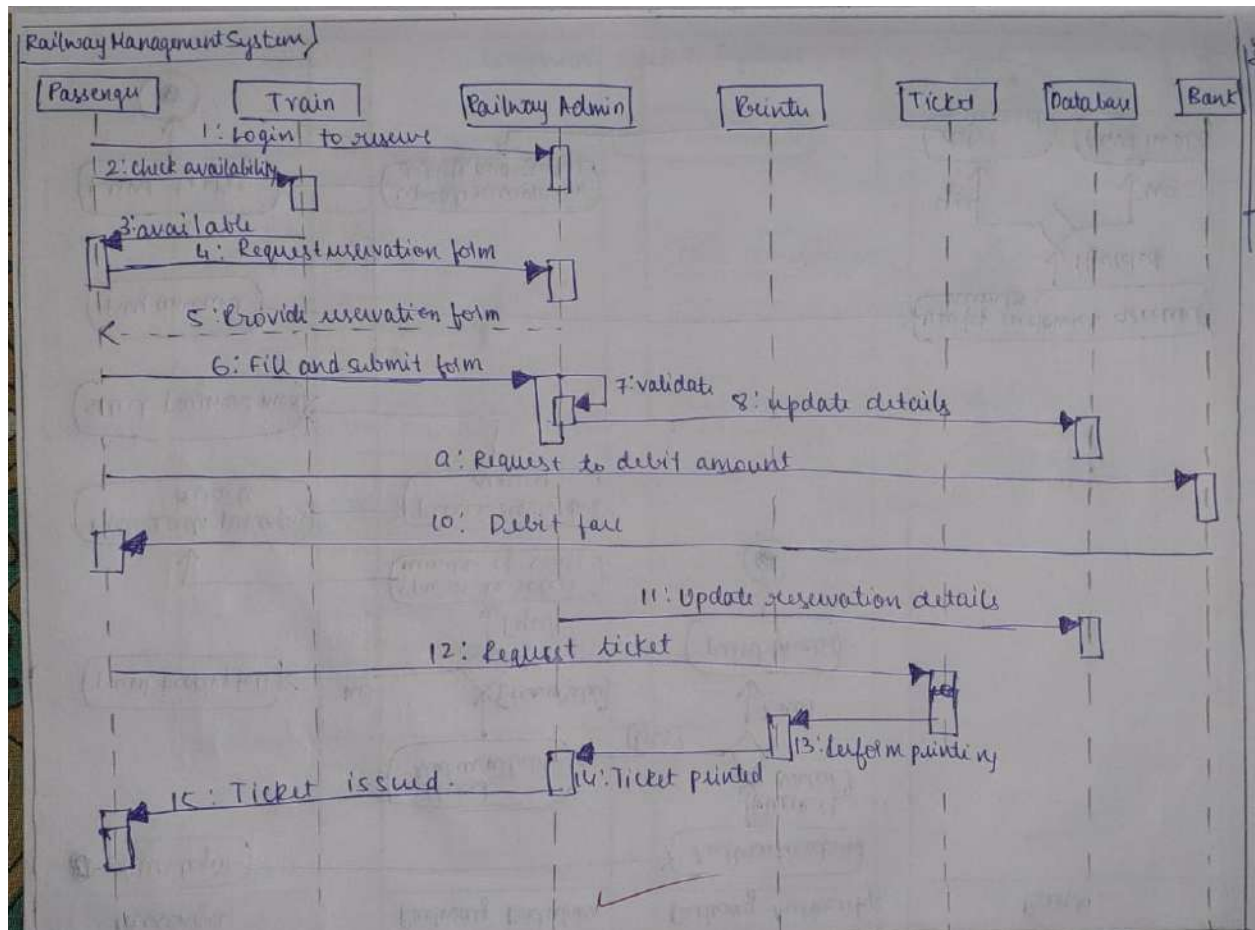 Railway Management System
Passenger
Train
Railway Admin
Printer
Ticket
Database
Bank
1: Login to reserve
2: check availability
3: available
4: Request reservation form
5: Provide reservation form
6: Fill and submit form
7: validate
8: update details
9: Request to debit amount
10: Debit fare
11: Update reservation details
12: Request ticket
13: Perform printing
14: Ticket printed
15: Ticket issued.